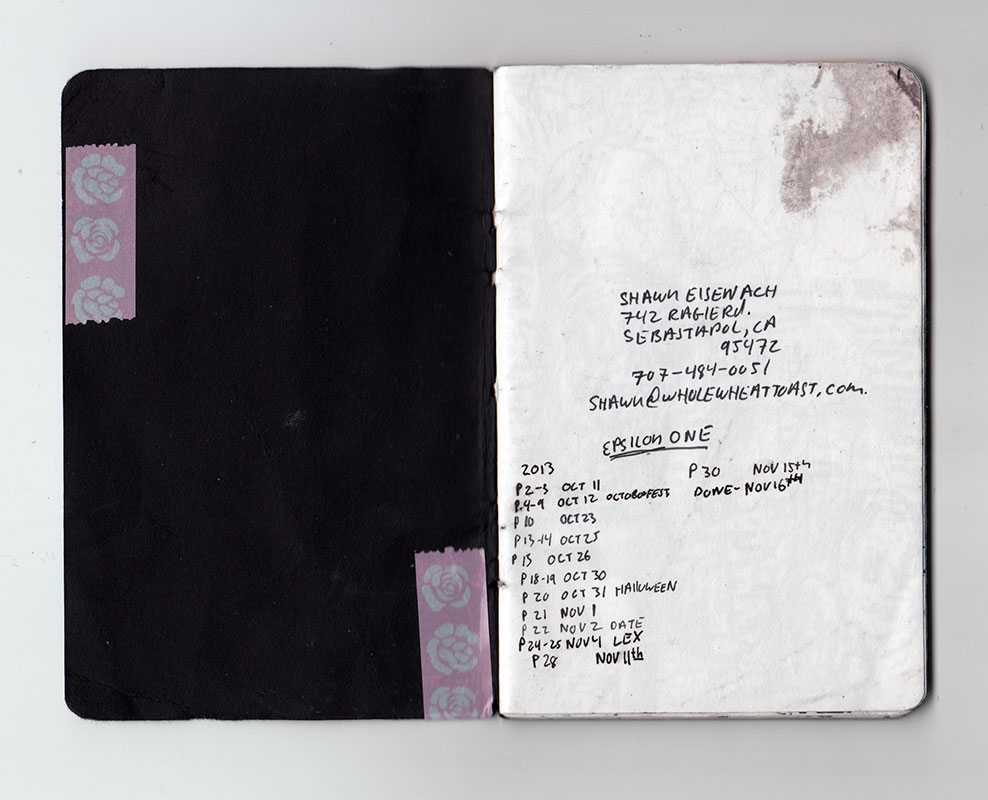 SHAWN EISENACH
742 RAGLE RD.
SEBASTAPOL, CA
95472
707-484-0051
SHAWN@WHOLEWHEATTOAST.COM.
EPSILON ONE
2013
P2-3 OCT 11
P.4-9 OCT 12 OCTOBORFEST
P10 OCT 23
P13-14 OCT 25
P15 OCT 26
P18-19 OCT 30
P 20 OCT 31 HALLOWEEN
P 21 NOV 1
P 22 NOV 2 DATE
P24-25 NOV 4 LEX
P28 NOV 11th
P 30 NOV 15th
DONE- NOV 16th